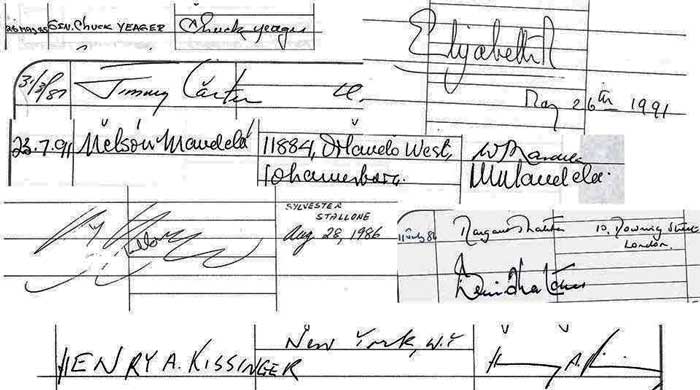 GEN. CHUCK YEAGER Chuck Yeager
Elizabeth R
May 26th 1991
31/3/87 Jimmy Carter
23.7.91 Nelson Mandela 11884, Orlando West, Johannesburg. NMandela
SYLVESTER
STALLONE
Aug 28, 1986
Margaret Thatcher 10, Downing Street
London.
Denis Thatcher
New York, N.Y
HENRY A. KISSINGER